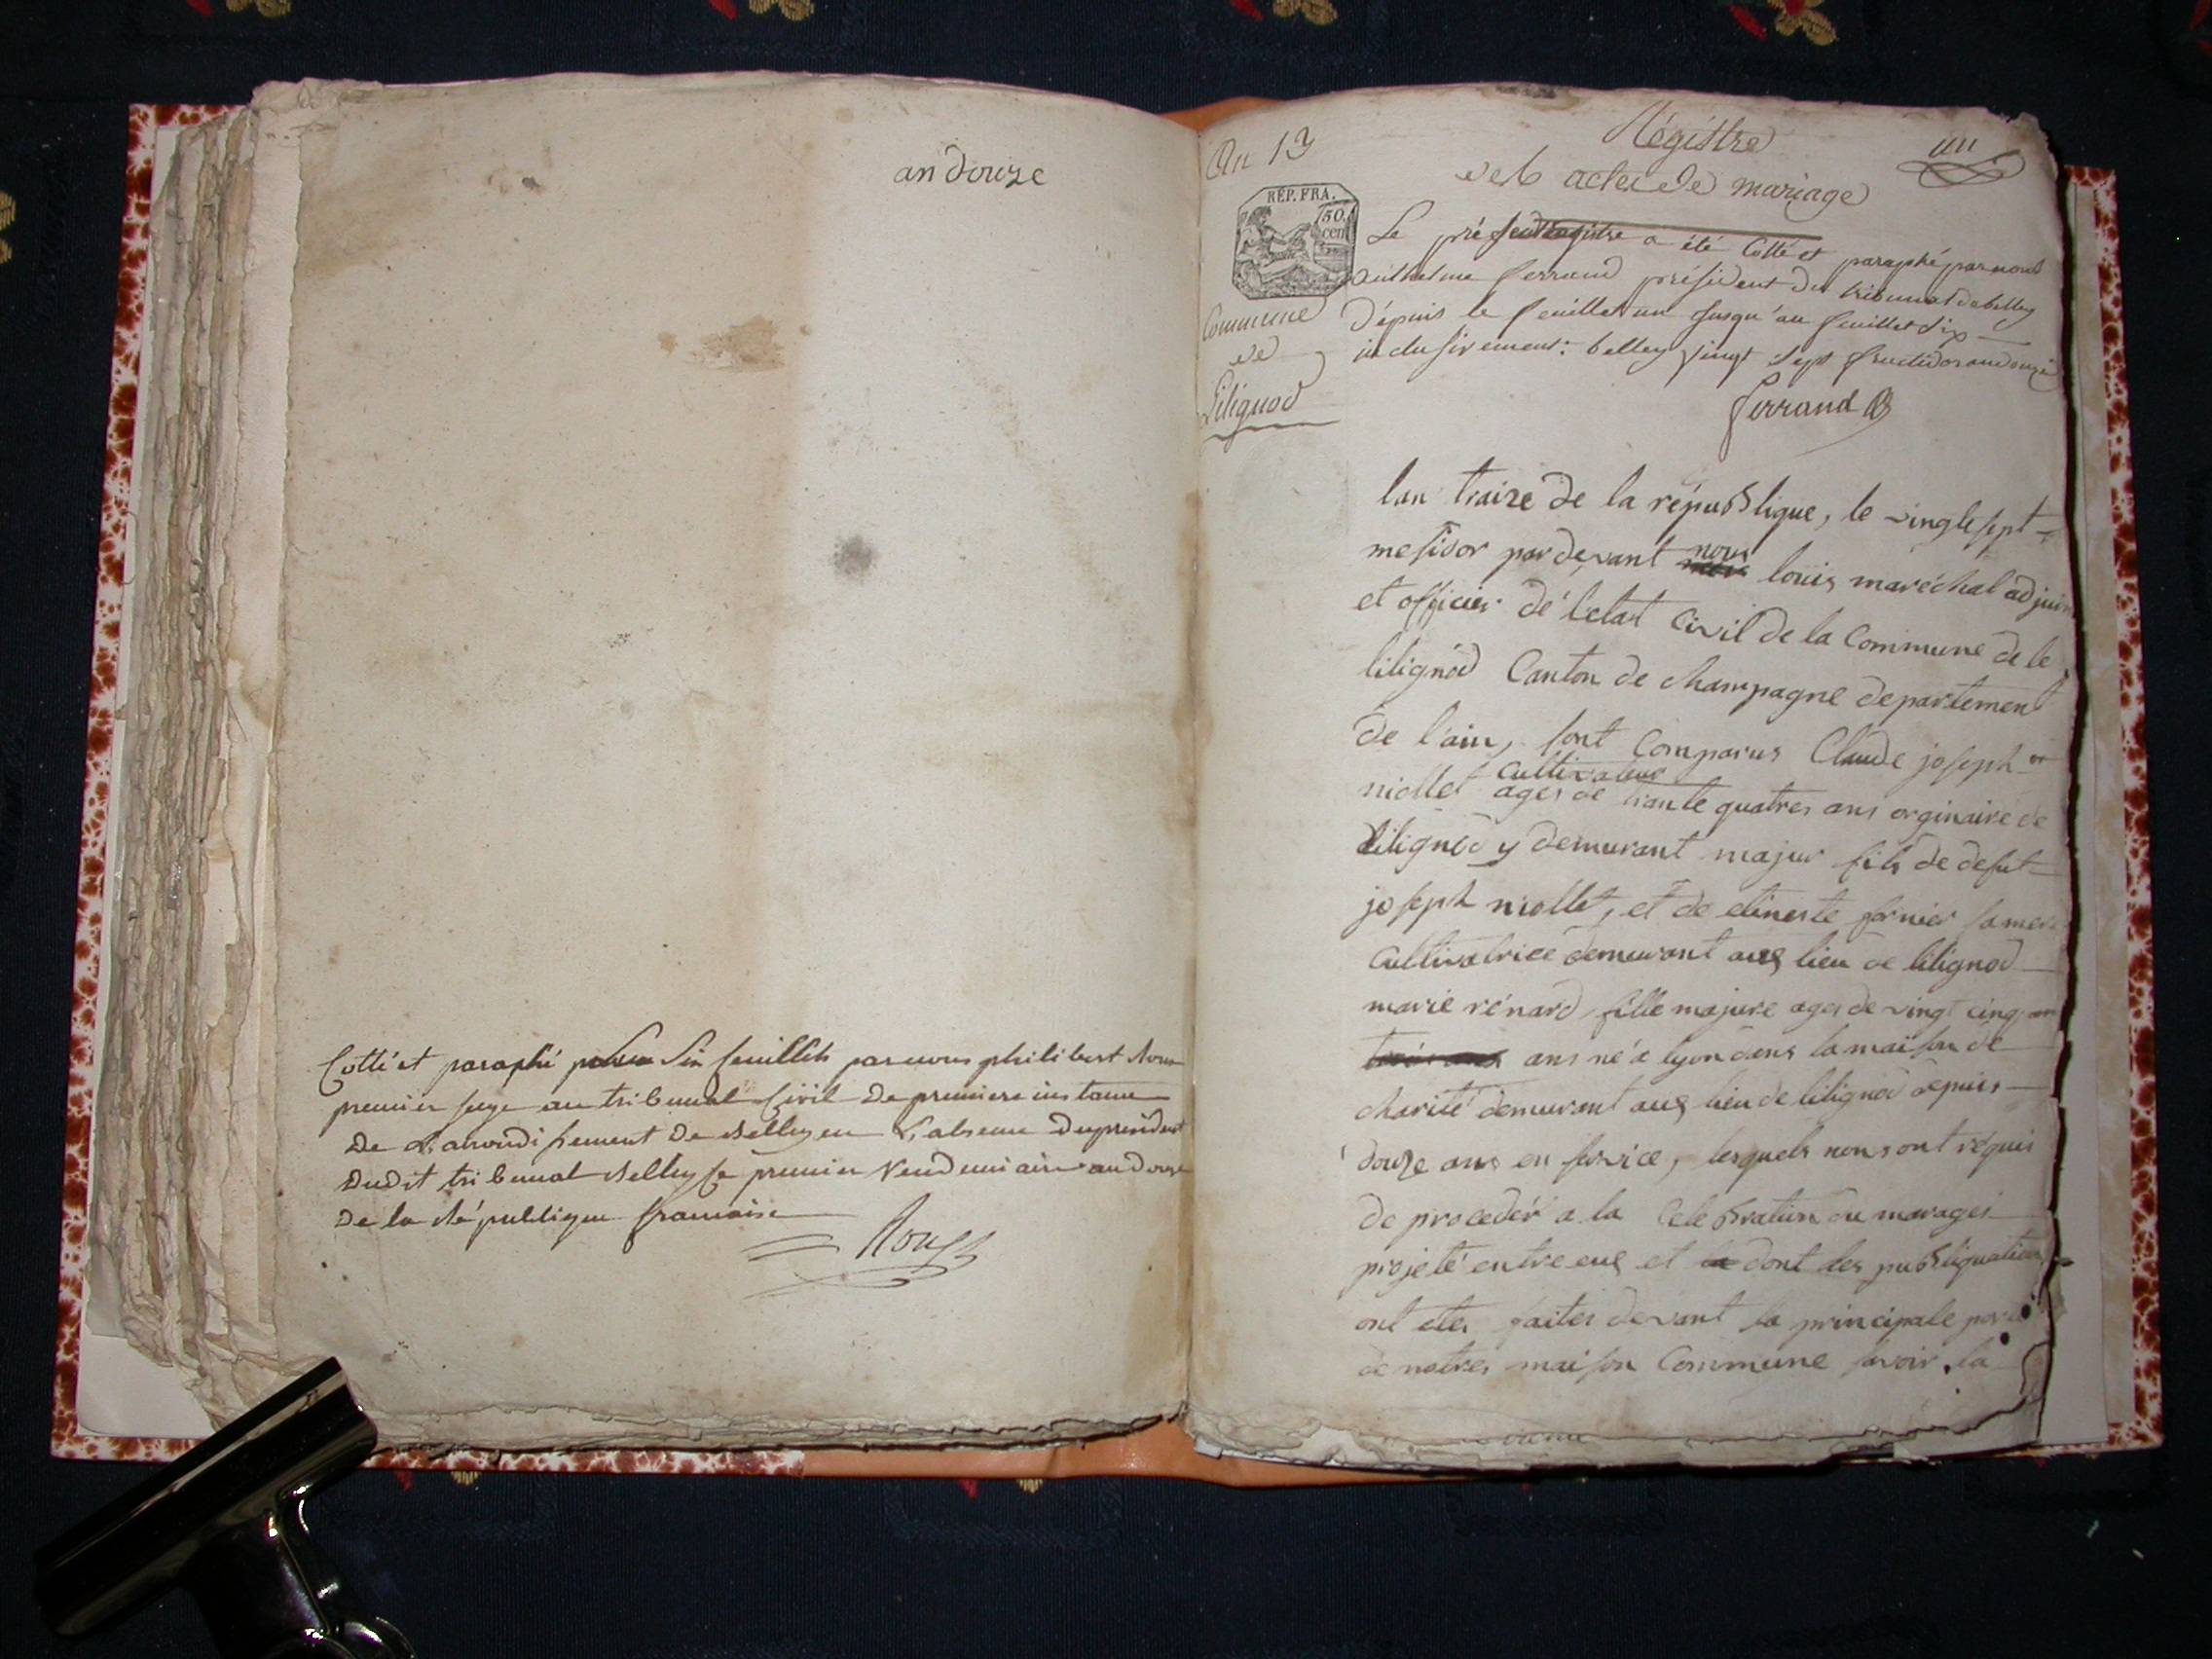 an douze
Cotté et paraphé six feuillets par nous philibert Roux
premier juge au tribunal civil de premiere instance
De L'arrondissement de Belley en L'absence du président
Dudit tribunal Belley le premier Vendemiaire an douze
De la République francaise
Roux
An 13
Régistre
des actes de mariage
un
RÉP. FRA.
50.
cent
Commune
de
Lilignod
Le présent registre a été Cotté et paraphé par nous
anthelme ferrand président du tribunal de belley
dépuis le feuillet un jusqu'au feuillet six
inclusivement: belley vingt sept fructidor an douze
ferrand
lan traize de la république, le vingte sept
mesidor par devant nous louis maréchal adjoin
et officier dé létat Civil de la Commune de le
lilignod Canton de champagne departement
de l'ain, sont Comparus Claude joseph
niollet cultivateur ages de trante quatres ans orginaire de
lilignod y demurant majur fils de defut
joseph niollet, et de fornier sa mere
Cultivatrice demeurant aux lieu de lilignod
marie rénard fille majure ages de vingt cinq
ans né a lyon dans la maison dé
charité demurant aux lieu de lilignod depuis
douze ans en service, lesquels nous ont réquis
de proceder a la Celebration du marages
projeté entre eux et dont les publiquations
ont etes faites devant la principale porte
de notres maison Commune savoir la